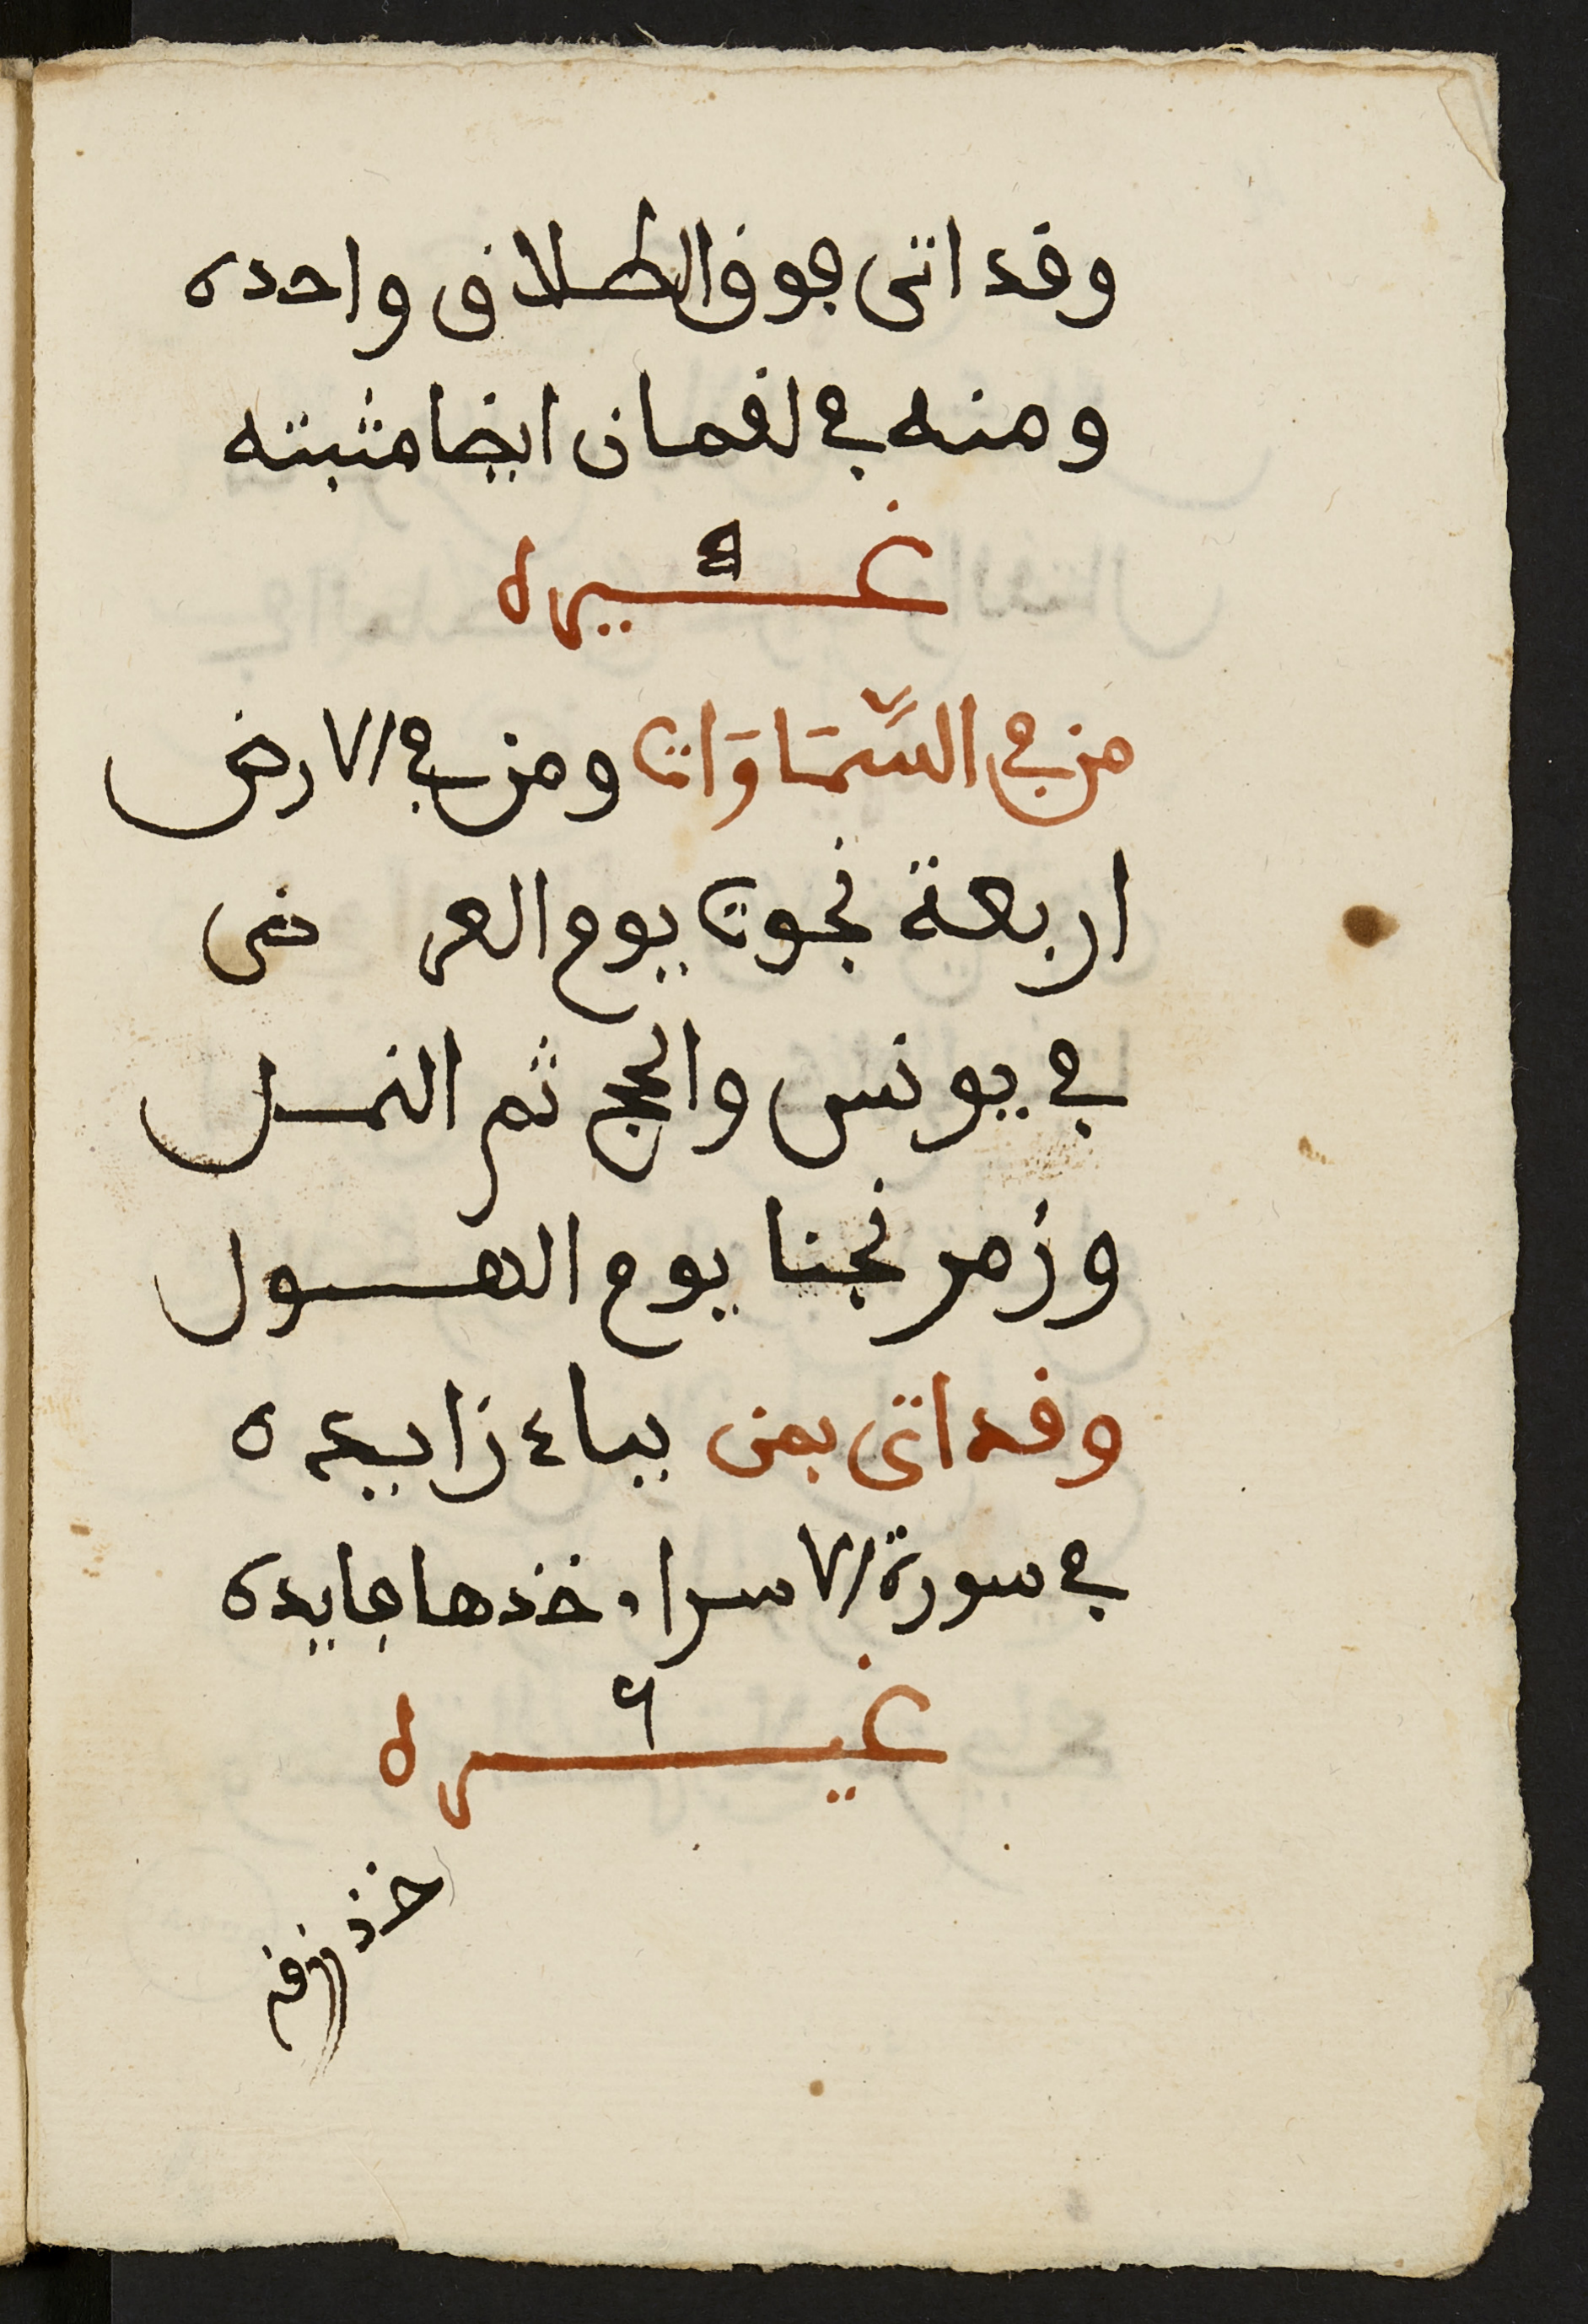 وقد اتى جوف الطلاق واحده
ومنه في لقمان ايضا مثبته
غيره
من في السَّمَاوَات ومن في الارض
اربعة نجوت يوم العرض
في يونس والحج ثم النمل
وزمر نجنا يوم الهول
وقد اتى بمن بباء زايده
في سورة الاسراء خذها فايده
غيره
خذ